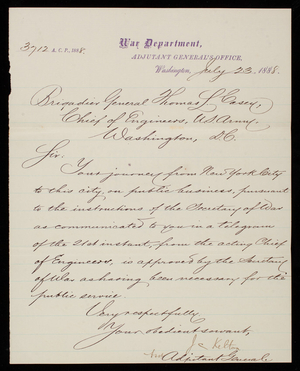 3712 A.C.P., 1888.
War Department,
ADJUTANT GENERAL'S OFFICE,
Washington, July 23, 1888.
Brigadier General Thomas L. Casey,
Chief of Engineers, U.S. Army,
Washington, D.C.
Sir:
Your journey from New York City
to this city, on public business, pursuant
to the instructions of the Secretary of War
as communicated to you in a telegram
of the 21st instant, from the acting Chief
of Engineers, is approved by the Secretary
of War as having been necessary for the
public service.
Very respectfully,
Your obedient servant,
Adjutant General.